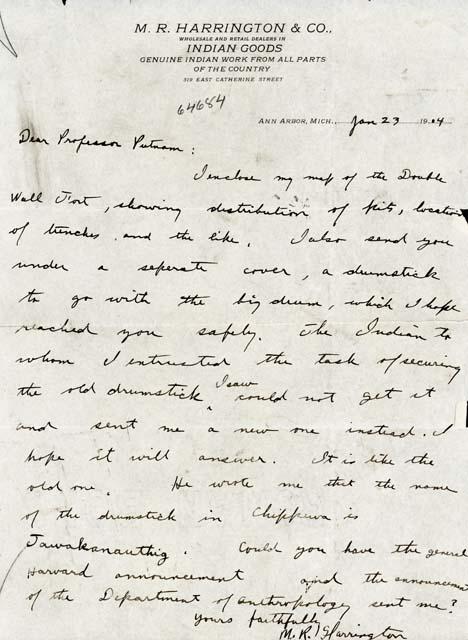 M. R. HARRINGTON & CO.,
WHOLESALE AND RETAIL DEALERS IN
INDIAN GOODS
GENUINE INDIAN WORK FROM ALL PARTS
OF THE COUNTRY
319 EAST CATHERINE STREET
64684
ANN ARBOR, MICH., Jan 23 1904
Dear Professor Putnam:
I enclose my map of the Double
Wall Fort, showing distribution of pits, location
of trenches and the like. I also send you
under a seperate cover, a drumstick
to go with the big drum, which I hope
reached you safely. The Indian to
whom I entrusted the task of securing
the old drumstick I saw could not get it
and sent me a new one instead. I
hope it will answer. It is like the
old one. He wrote me that the name
of the drumstick in Chippewa is
Jawakanauthig. Could you have the general
Harvard announcement and the announcement
of the Department of anthropology sent me?
Yours faithfully
M. R. Harrington